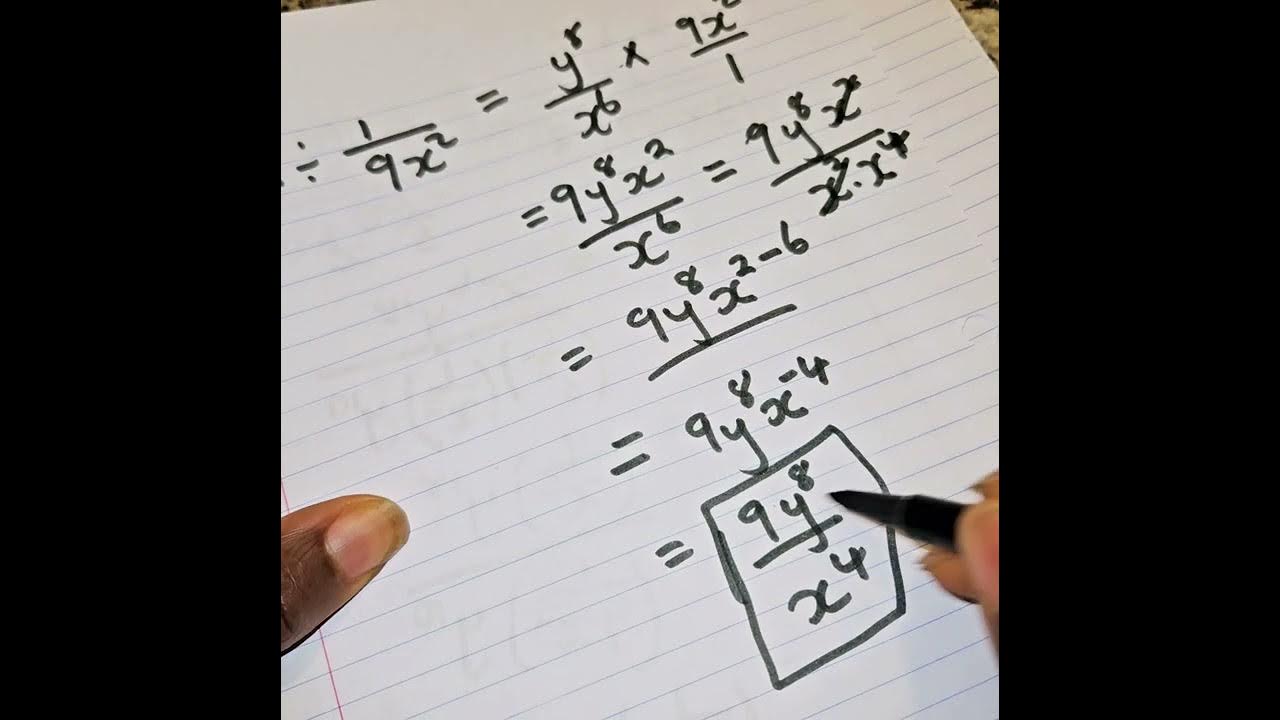 ÷ 1/(9x²) = y⁸/x⁶ × 9x²/1
= 9y⁸x²/x⁶ = 9y⁸x²/(x²·x⁴)
= 9y⁸x²⁻⁶
= 9y⁸x⁻⁴
= 9y⁸/x⁴